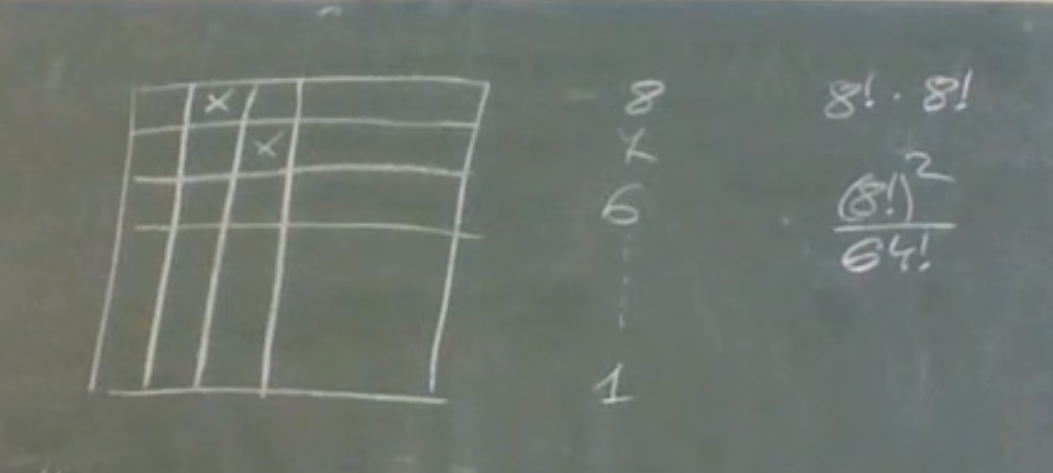 x
x
8
7
6
1
8! · 8!
(8!)²
64!